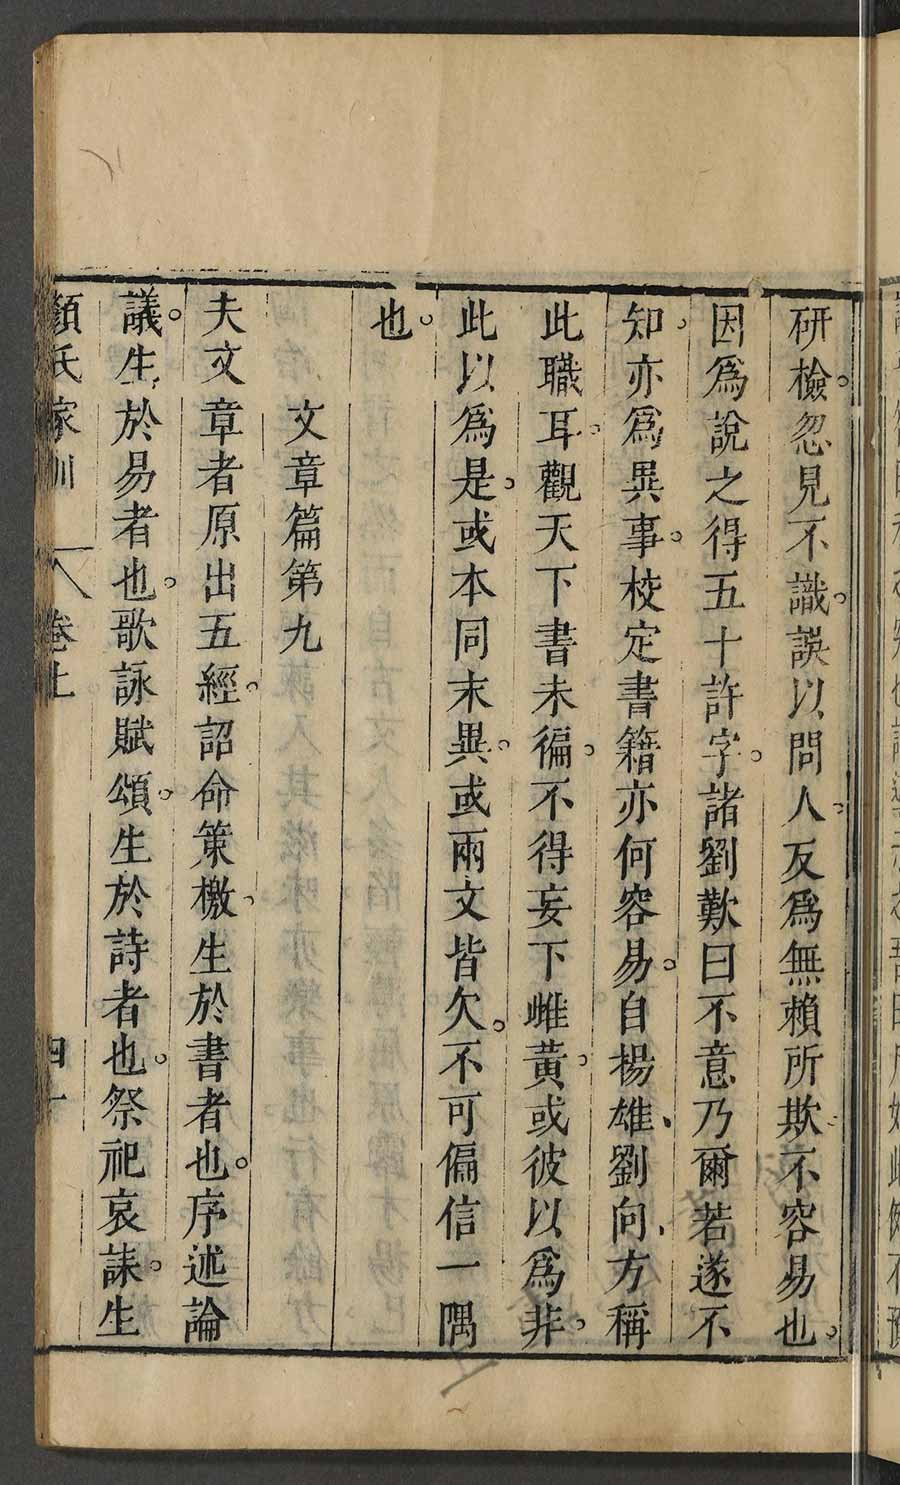 研檢。忽見不識。誤以問人。反爲無賴所欺。不容易也。
因爲說之得五十許字。諸劉歎曰不意乃爾若遂不
知。亦爲異事。校定書籍亦何容易。自楊雄、劉向、方稱
此職耳。觀天下書未徧。不得妄下雌黃。或彼以爲非。
此以爲是。或本同末異。或兩文皆欠。不可偏信一隅
也。
文章篇第九
夫文章者原出五經。詔命策檄。生於書者也。序述論
議。生於易者也。歌詠賦頌。生於詩者也。祭祀哀誄。生
顏氏家訓 卷上 四十